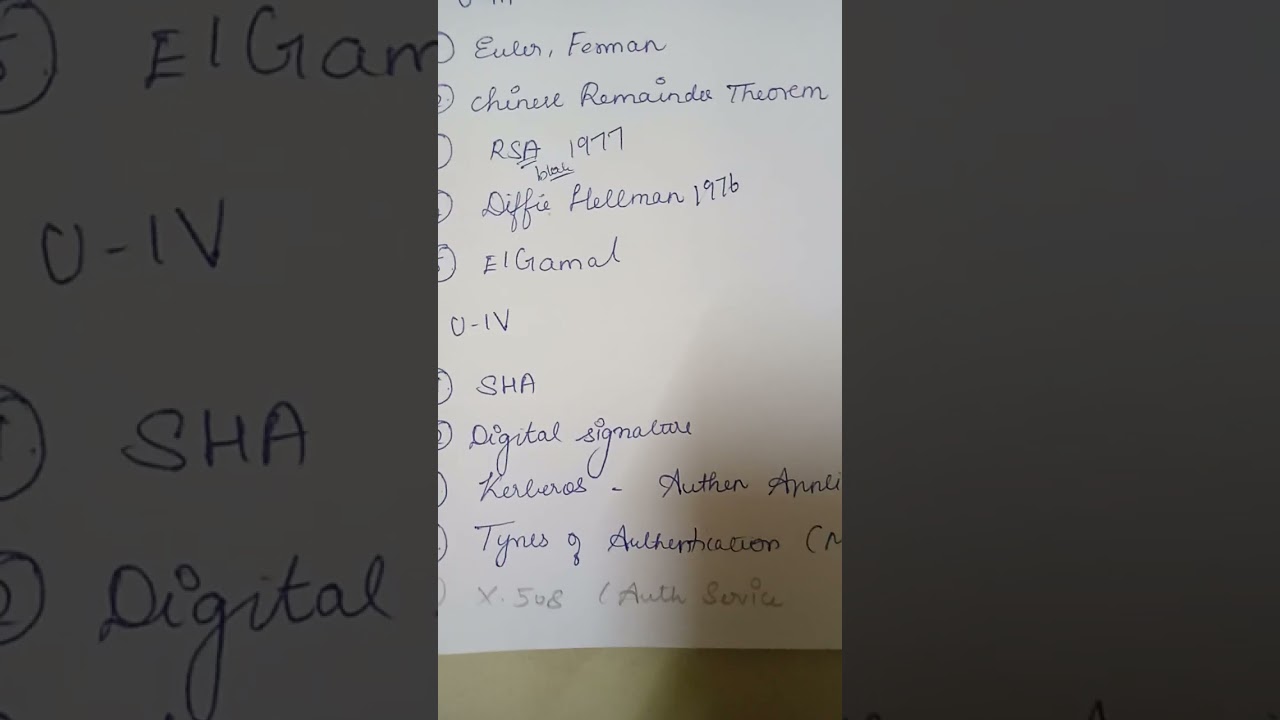 Euler, Ferman
2) Chinese Remainder Theorem
RSA 1977
block
Diffie Hellman 1976
5) ElGamal
U-IV
1) SHA
2) Digital signature
Kerberos - Authen Appli
Types of Authentication (M
X.508 (Auth Service